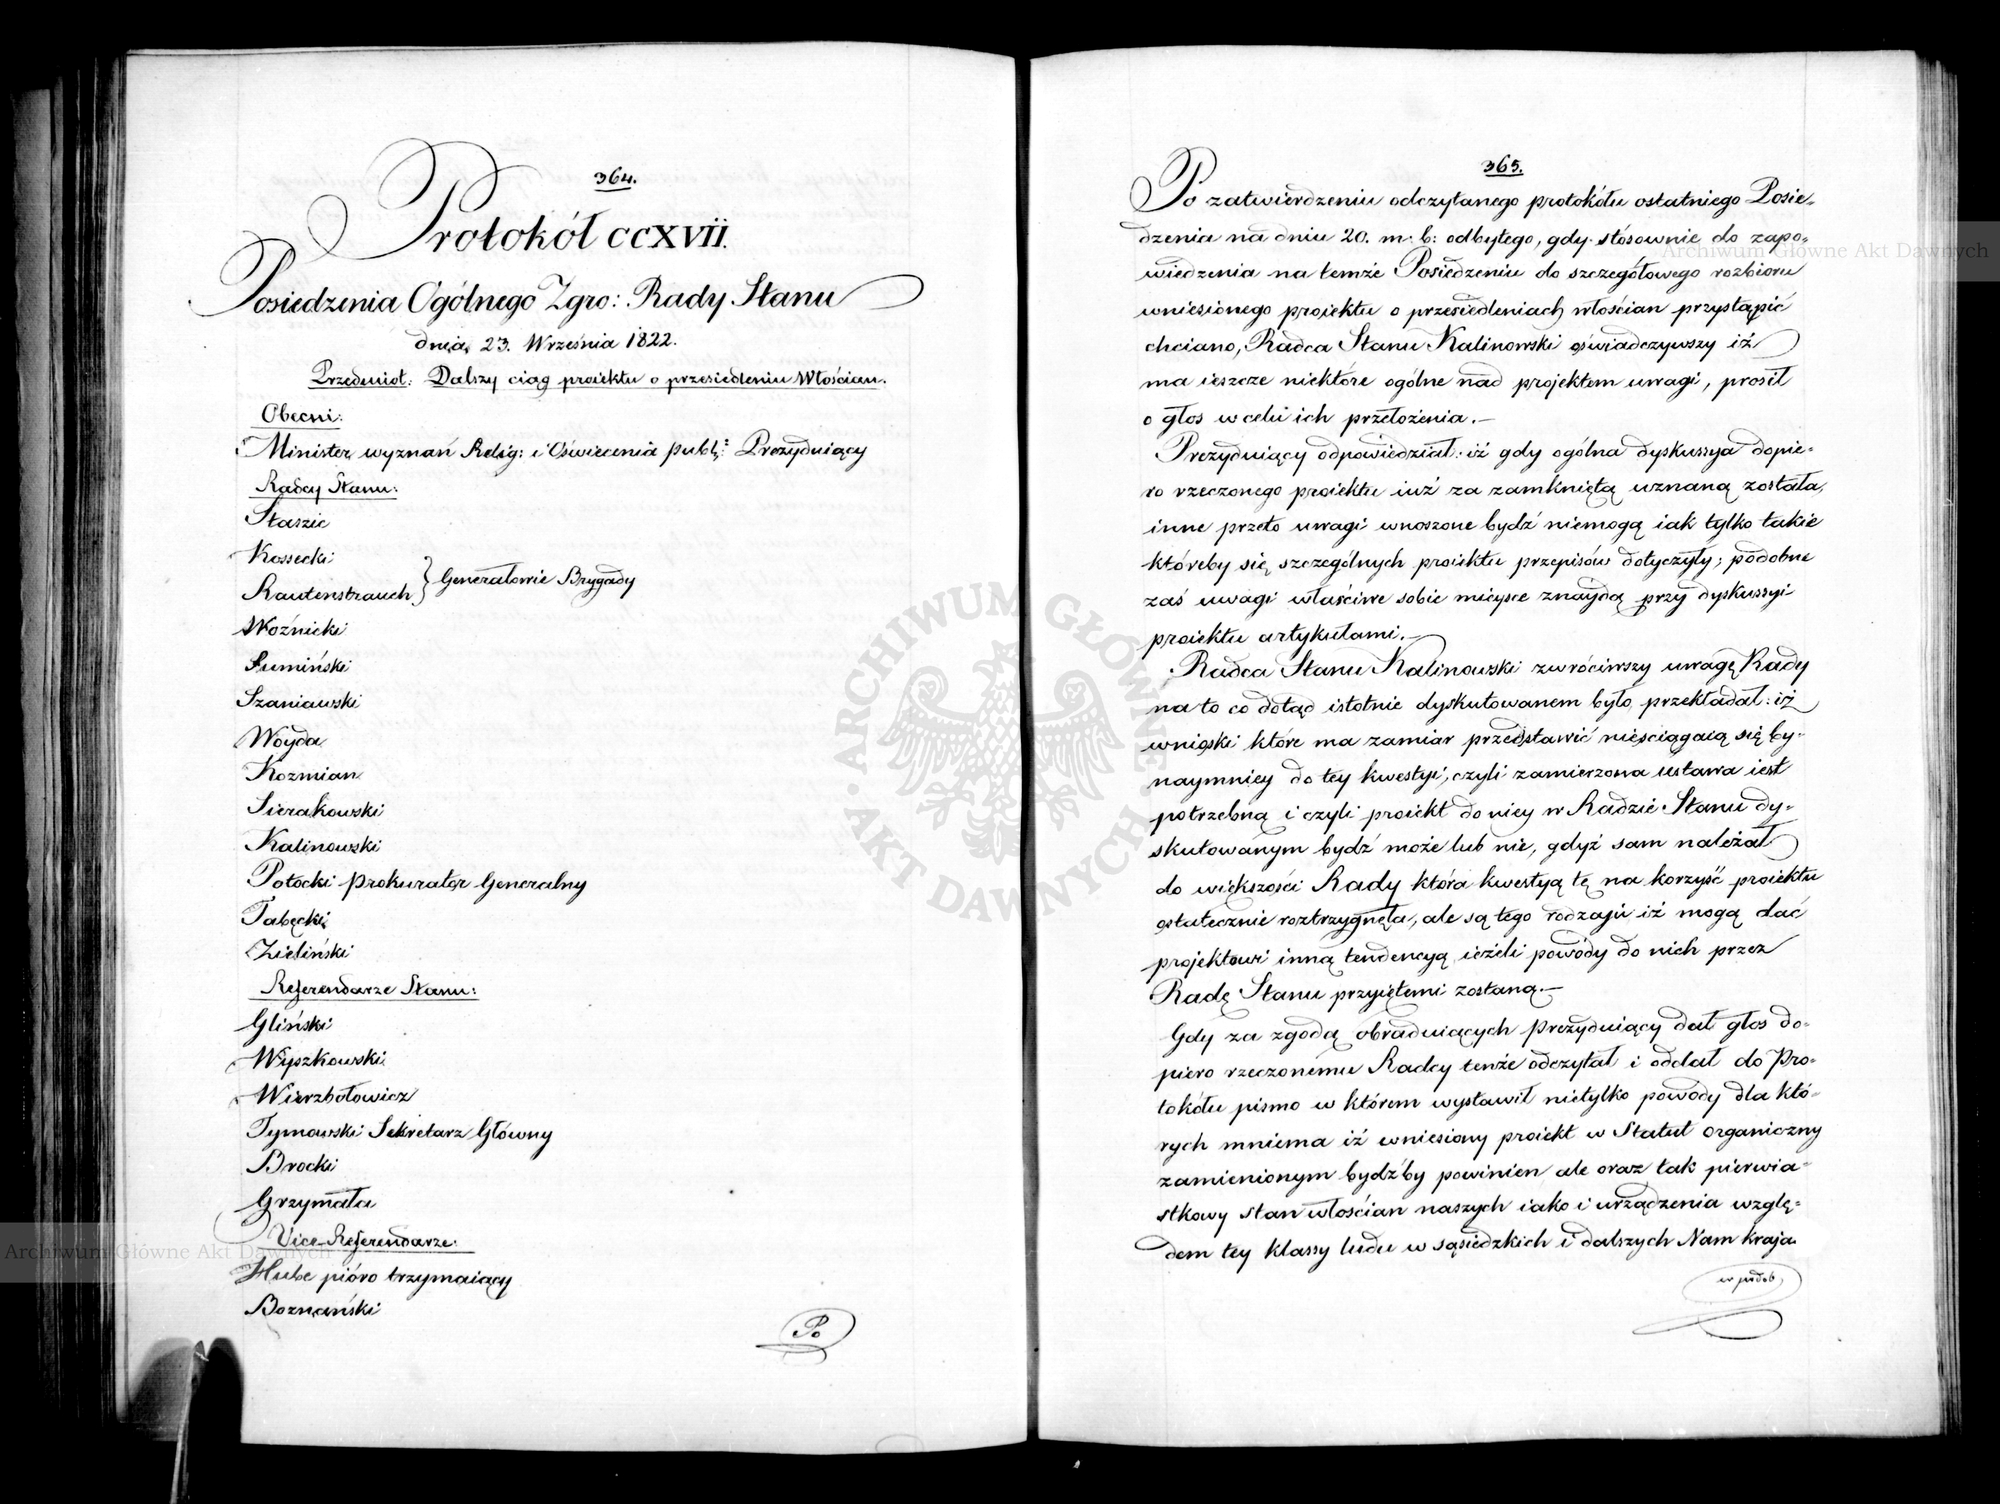 364.
Protokół CCXVII.
Posiedzenia Ogólnego Zgro: Rady Stanu
dnia 23. Września 1822.
Przedmiot: Dalszy ciąg proiektu o przesiedleniu Włościan.
Obecni:
Minister wyznań Relig: i Oświecenia publ: Prezyduiący
Radcy Stanu:
Staszic
Kossecki
Rautenstrauch } Generałowie Brygady
Woźnicki
Sumiński
Szaniawski
Woyda
Kozmian
Sierakowski
Kalinowski
Potocki prokurator Generalny
Tabęcki
Zieliński
Referendarze Stanu:
Gliński
Wyszkowski
Wierzbołowicz
Tymowski Sekretarz Główny
Brocki
Grzymała
Vice-Referendarze:
Hube pióro trzymaiący
Boznański
Po
365.
Po zatwierdzeniu odczytanego protokółu ostatniego Posie-
dzenia na dniu 20. m: b: odbytego, gdy stósownie do zapo-
wiedzenia na temże Posiedzeniu do szczegółowego rozbioru
wniesionego proiektu o przesiedleniach włościan przystąpić
chciano, Radca Stanu Kalinowski oświadczywszy iż
ma ieszcze niektóre ogólne nad projektem uwagi, prosił
o głos w celu ich przełożenia.—
Prezyduiący odpowiedział: iż gdy ogólna dyskussya dopie-
ro rzeczonego proiektu iuż za zamkniętą uznaną została,
inne przeto uwagi wnoszone bydź niemogą iak tylko takie
któreby się szczególnych proiektu przepisów dotyczyły; podobne
zaś uwagi właściwe sobie mieysce znaydą przy dyskussyi
proiektu artykułami.—
Radca Stanu Kalinowski zwróciwszy uwagę Rady
na to co dotąd istotnie dyskutowanem było, przekładał: iż
wnioski które ma zamiar przedstawić nieściągaią się by-
naymniey do tey kwestyi, czyli zamierzona ustawa iest
potrzebną i czyli proiekt do niey w Radzie Stanu dy-
skutowanym bydź może lub nie, gdyż sam należał
do większości Rady która kwestyą tę na korzyść proiektu
ostatecznie roztrzygnęła, ale są tego rodzaju iż mogą dać
projektowi inną tendencyą ieżeli powody do nich przez
Radę Stanu przyiętemi zostaną.—
Gdy za zgodą obraduiących Prezyduiący dał głos do-
piero rzeczonému Radcy tenże odczytał i oddał do Pro-
tokółu pismo w którem wystawił nietylko powody dla któ-
rych mniema iż wniesiony proiekt w Statut organiczny
zamienionym bydźby powinien ale oraz tak pierwia-
stkowy stan włościan naszych iako i urządzenia wzglę-
dem tey klassy ludu w sąsiedzkich i dalszych Nam kraja
Archiwum Główne Akt Dawnych
Archiwum Główne Akt Dawnych
ARCHIWUM GŁÓWNE AKT DAWNYCH